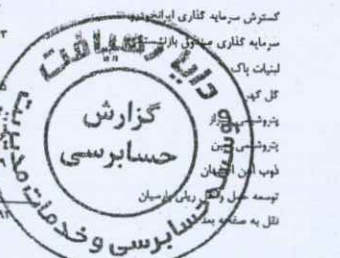 گسترش سرمایه گذاری ایرانخودرو
سرمایه گذاری صندوق بازنشستگی
لبنیات پاک
گل گهر
پتروشیمی شیراز
پتروشیمی
ذوب آهن اصفهان
توسعه حمل و ریلی پارسیان
نقل به صفحه بعد
دایا رهیافت
گزارش
حسابرسی
حسابرسی و خدمات مدیریت